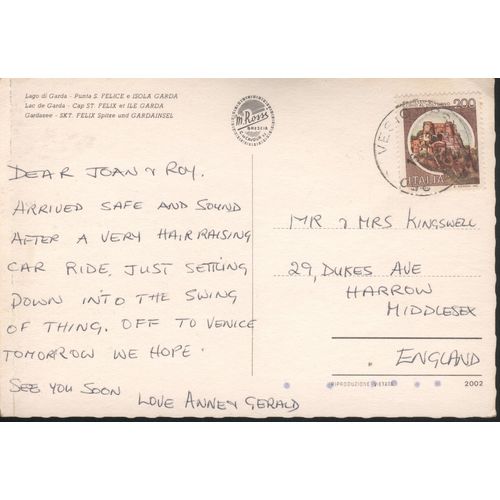 Lago di Garda - Punta S. FELICE e ISOLA GARDA
Lac de Garda - Cap ST. FELIX et ILE GARDA
Gardasee - SKT. FELIX Spitze und GARDAINSEL
m. Rossi
BRESCIA
200
ITALIA
DEAR JOAN & ROY.
ARRIVED SAFE AND SOUND
AFTER A VERY HAIRRAISING
CAR RIDE. JUST SETTING
DOWN INTO THE SWING
OF THING. OFF TO VENICE
TOMORROW WE HOPE.
SEE YOU SOON
LOVE ANNE & GERALD
MR & MRS KINGSWELL
29, DUKES AVE
HARROW
MIDDLESEX
ENGLAND
RIPRODUZIONE VIETATA
2002